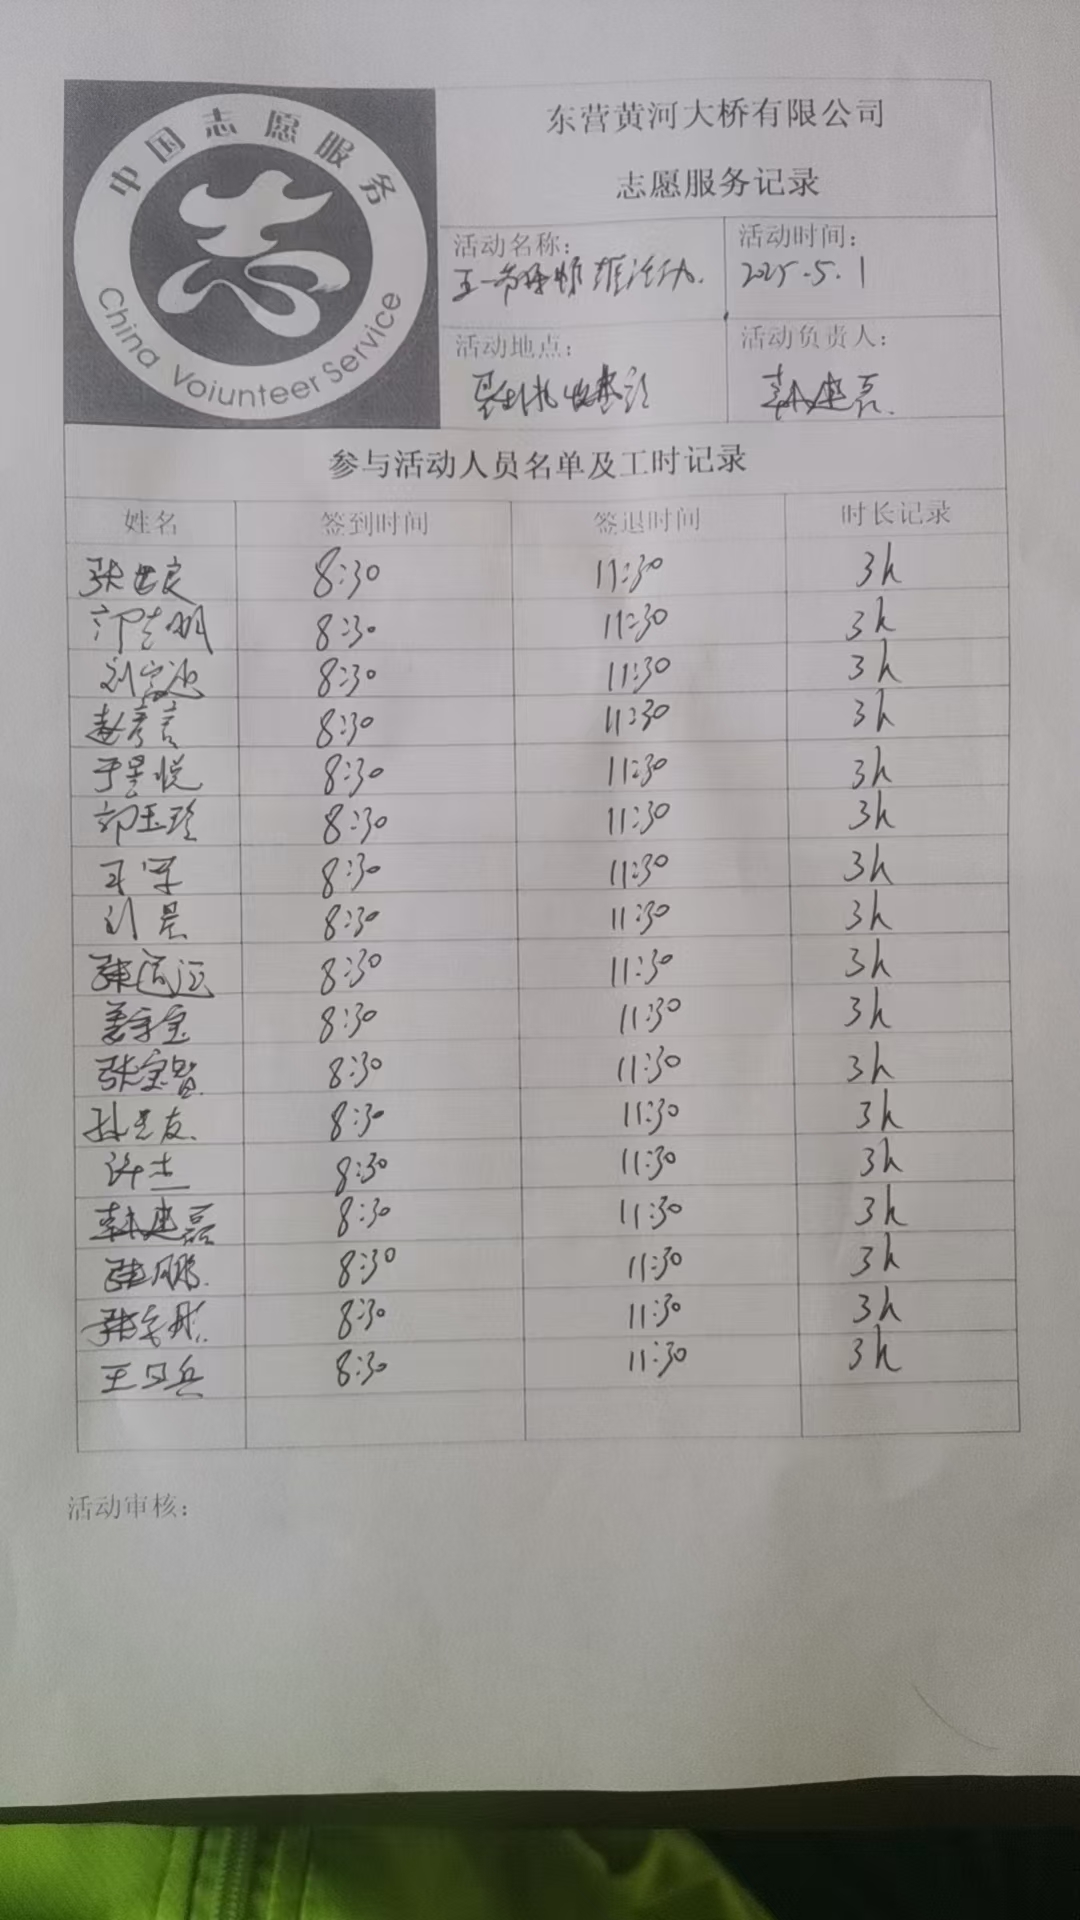 中国志愿服务
China Voiunteer Service
东营黄河大桥有限公司
志愿服务记录
活动名称:
活动时间:
2025.5.1
活动地点:
活动负责人:
韩建磊
参与活动人员名单及工时记录
姓名 签到时间 签退时间 时长记录
张世良 8:30 11:30 3h
8:30 11:30 3h
8:30 11:30 3h
赵彦言 8:30 11:30 3h
于景悦 8:30 11:30 3h
郭玉玲 8:30 11:30 3h
王军 8:30 11:30 3h
刘晨 8:30 11:30 3h
8:30 11:30 3h
姜宝 8:30 11:30 3h
张宝智 8:30 11:30 3h
8:30 11:30 3h
许杰 8:30 11:30 3h
韩建磊 8:30 11:30 3h
张鹏 8:30 11:30 3h
8:30 11:30 3h
王卫兵 8:30 11:30 3h
活动审核: